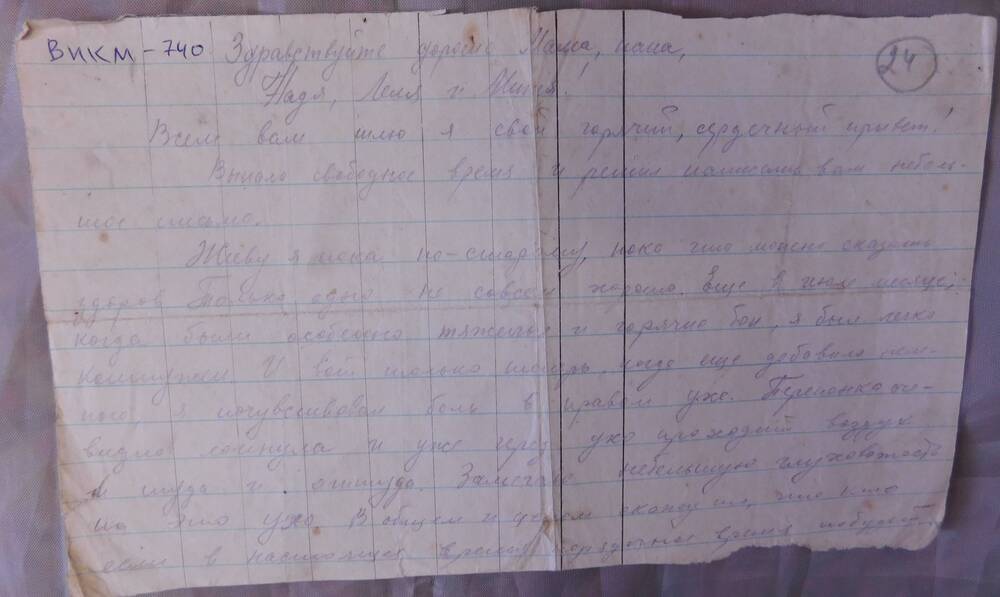 ВИКМ-740 Здравствуйте дорогие Мама, папа, 24
Надя, Леля и Митя!
Всем вам шлю я свой горячий, сердечный привет!
Выпало свободное время и решил написать вам неболь-
шое письмо.
Живу я пока по-старому, пока что можно сказать
здоров. Только одно не совсем хорошо. Еще в июле месяце,
когда были особенно тяжелые и горячие бои, я был легко
контужен. И вот только теперь, когда еще добавило нем-
ного, я почувствовал боль в правом ухе. Перепонка оче-
видно лопнула и уже через ухо проходит воздух
и туда и оттуда. Замечаю небольшую глуховатость
на это ухо. В общем и целом что кто
если в настоящее время порядочное время побудет